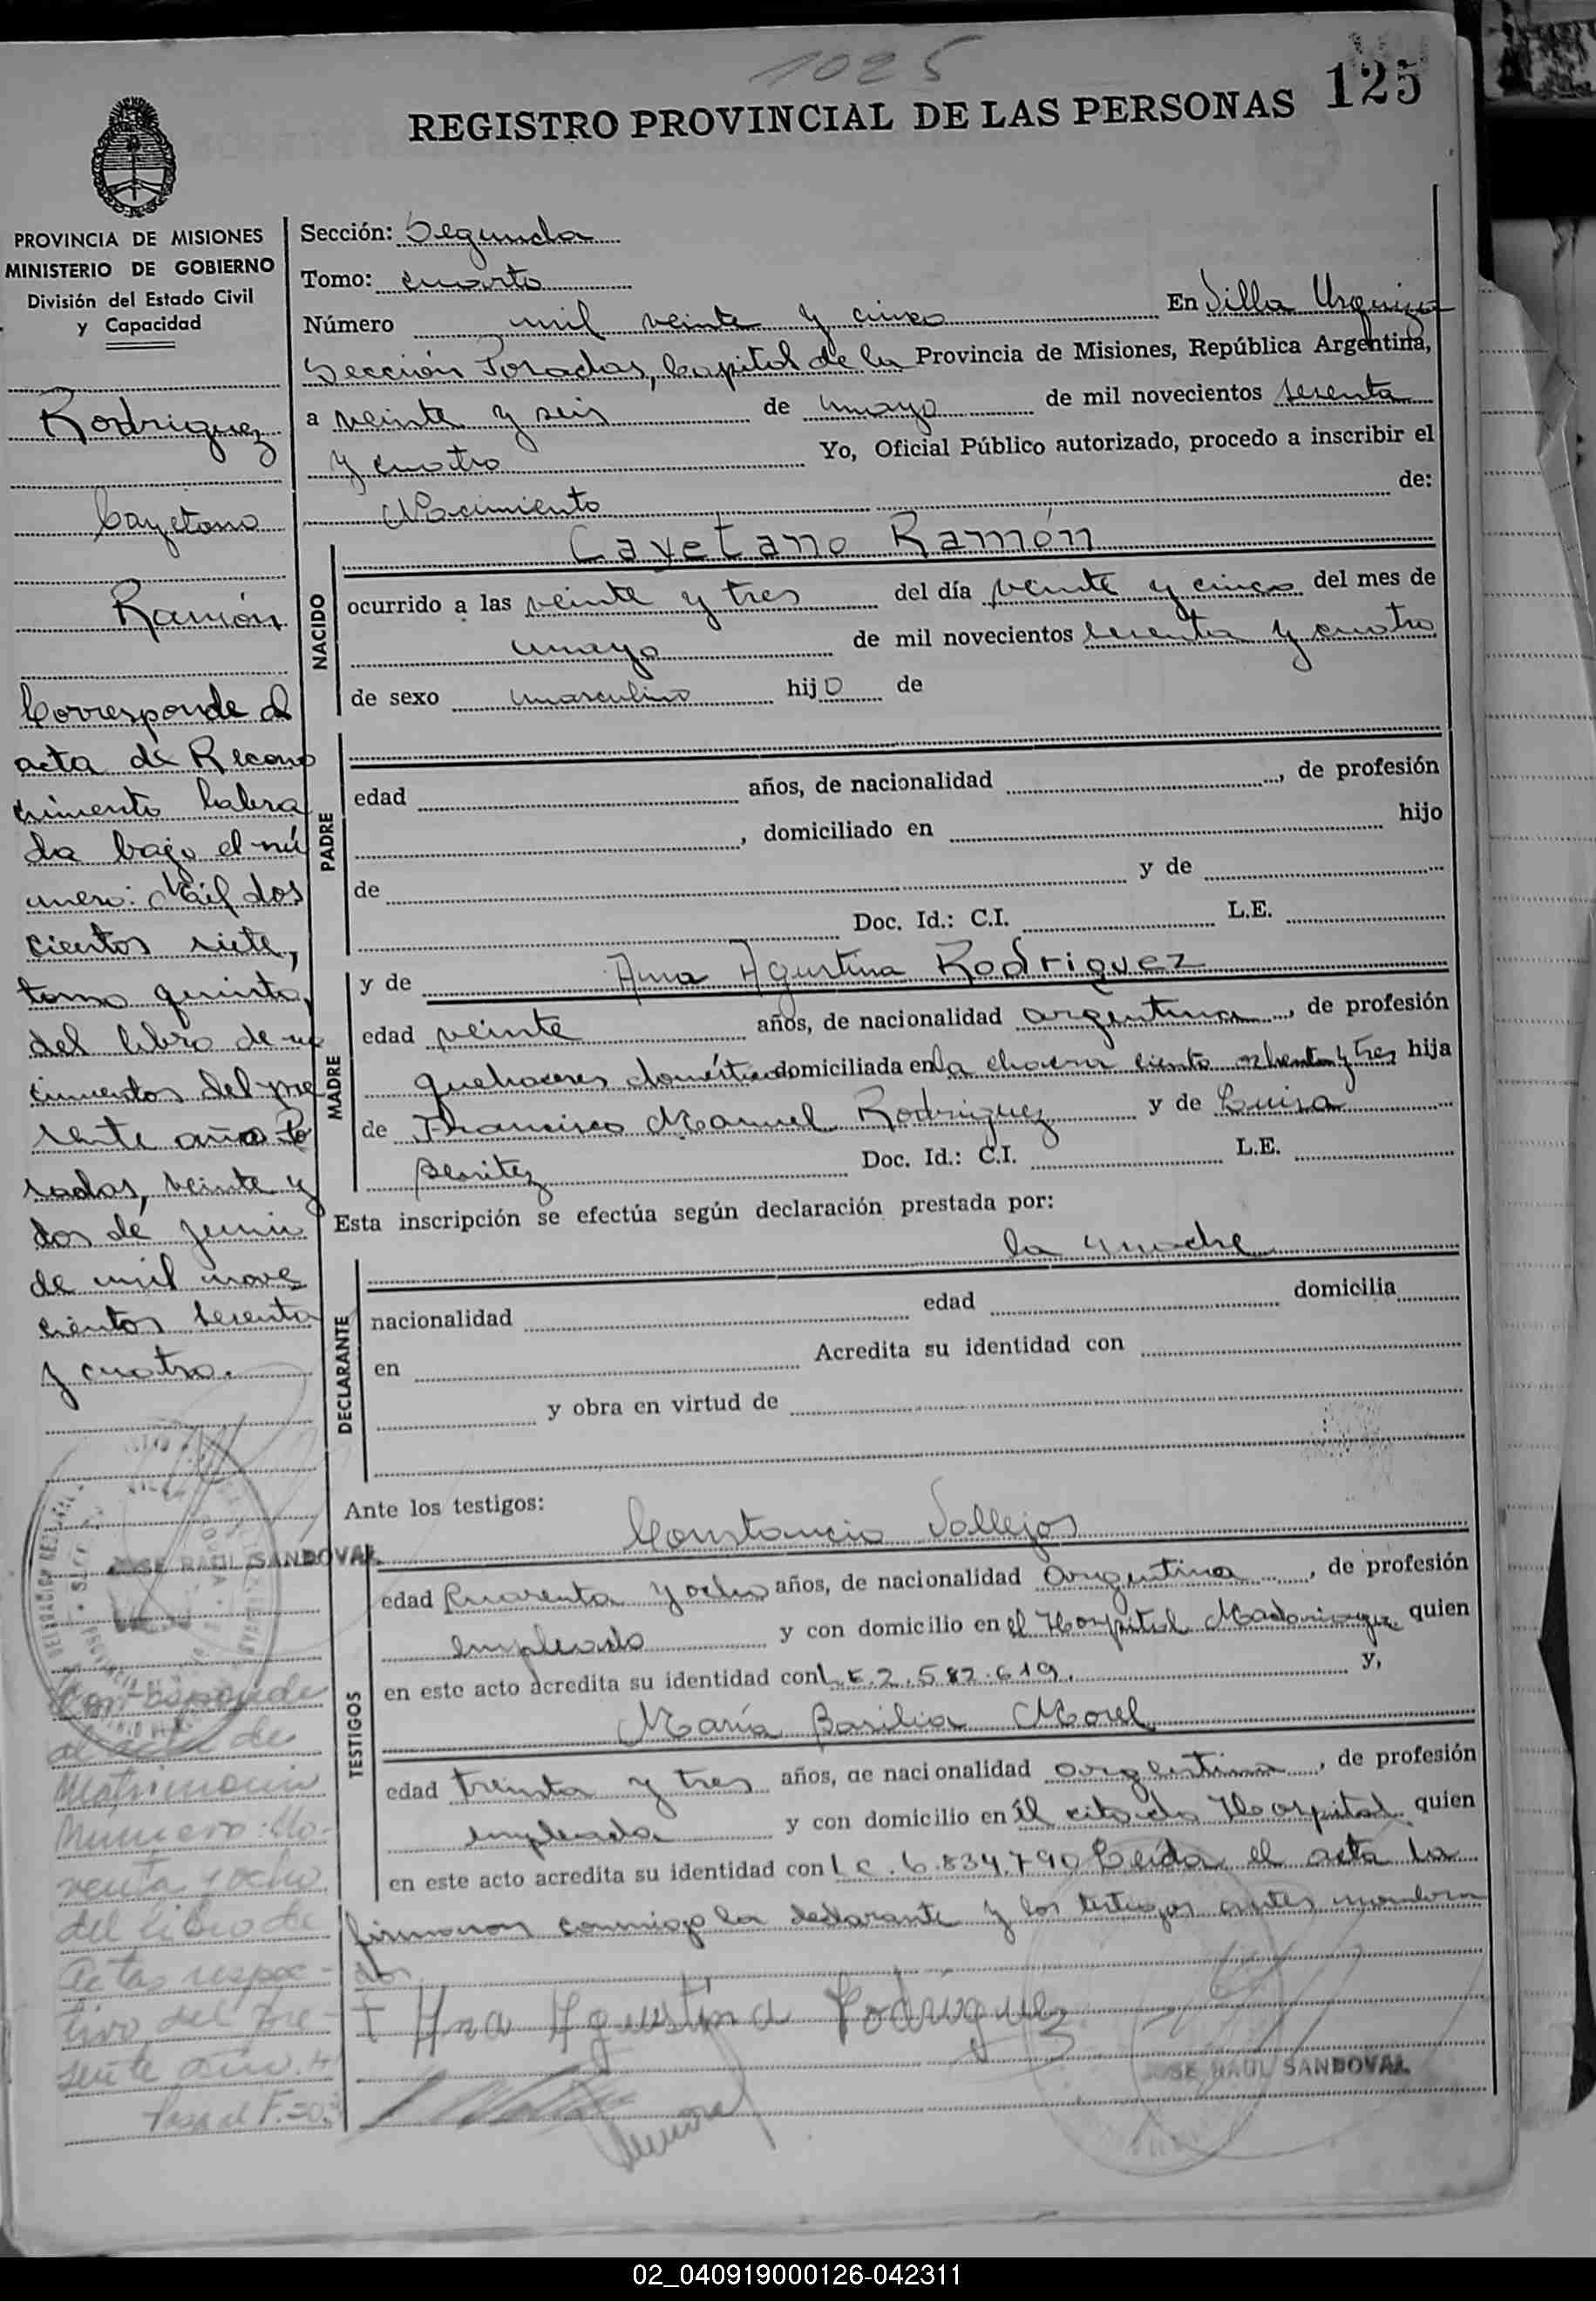 1025
REGISTRO PROVINCIAL DE LAS PERSONAS 125
PROVINCIA DE MISIONES
MINISTERIO DE GOBIERNO
División del Estado Civil
y Capacidad
Rodriguez
Cayetano
Ramón
Corresponde al
acta de Recono
cimiento labra
da bajo el nú
mero: Mil dos
cientos siete,
tomo quinto,
del libro de na
cimientos del pre
sente año Po
sadas, veinte y
dos de junio
de mil nove
cientos sesenta
y cuatro.
JOSE RAUL SANDOVAL
Corresponde
al acta de
Matrimonio
Número: No-
venta y ocho
del Libro de
Actas respec-
tivo del Pre-
sente año.
Pasa al F.
Sección: Segunda
Tomo: cuarto
Número mil veinte y cinco En Villa Urquiza
Sección Posadas, Capital de la Provincia de Misiones, República Argentina,
a veinte y seis de mayo de mil novecientos sesenta
y cuatro Yo, Oficial Público autorizado, procedo a inscribir el
Nacimiento de:
NACIDO
Cayetano Ramón
ocurrido a las veinte y tres del día veinte y cinco del mes de
mayo de mil novecientos sesenta y cuatro
de sexo masculino hijo de
PADRE
edad años, de nacionalidad , de profesión
, domiciliado en hijo
de y de
Doc. Id.: C.I. L.E.
MADRE
y de Ana Agustina Rodriguez
edad veinte años, de nacionalidad argentina, de profesión
quehaceres domésticos domiciliada en la chacra ciento ochenta y tres hija
de Francisco Manuel Rodriguez y de Luisa
Benitez Doc. Id.: C.I. L.E.
Esta inscripción se efectúa según declaración prestada por:
DECLARANTE
la madre
nacionalidad edad domicilia
en Acredita su identidad con
y obra en virtud de
Ante los testigos:
TESTIGOS
Constancio Vallejos
edad Cuarenta y ocho años, de nacionalidad Argentina, de profesión
empleado y con domicilio en el Hospital Madariaga quien
en este acto acredita su identidad con L.E.2.582.619. y,
María Basilia Morel
edad treinta y tres años, de nacionalidad argentina, de profesión
empleada y con domicilio en él citado Hospital quien
en este acto acredita su identidad con L C.6.834.790 Leída el acta la
firmaron conmigo la declarante y los testigos antes nombra
dos
+ Ana Agustina Rodriguez
JOSE RAUL SANDOVAL
02_040919000126-042311